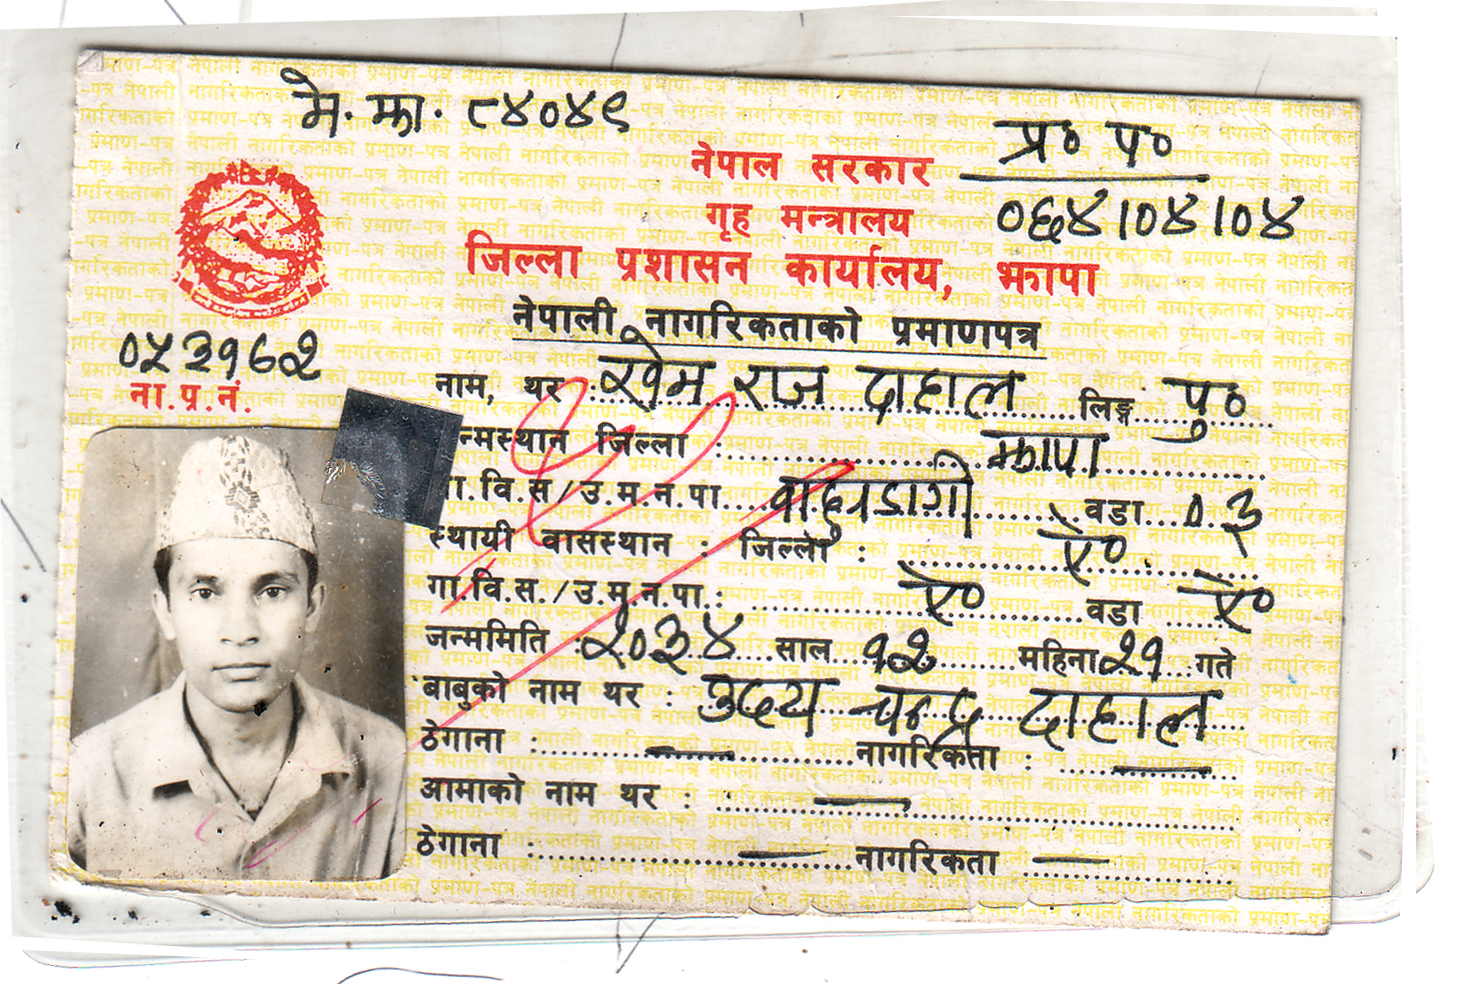 मे. झा. ८४०४९
प्र० प०
नेपाल सरकार
गृह मन्त्रालय
०६४।०४।०४
जिल्ला प्रशासन कार्यालय, झापा
नेपाली नागरिकताको प्रमाणपत्र
०५३१६८२
ना.प्र.नं.
नाम, थर : खेम राज दाहाल लिङ्ग पु०
न्मस्थान जिल्ला : झापा
गा.वि.स/उ.म.न.पा. बाहुनडाँगी वडा ०३
स्थायी वासस्थान : जिल्ला : ऐ०
गा.वि.स./उ.म.न.पा.: ऐ० वडा ऐ०
जन्ममिति : २०३४ साल १२ महिना २१ गते
बाबुको नाम थर : उदय चन्द्र दाहाल
ठेगाना : — नागरिकता : —
आमाको नाम थर : —
ठेगाना : — नागरिकता —